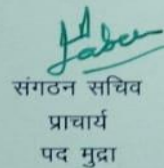 संगठन सचिव
प्राचार्य
पद मुद्रा